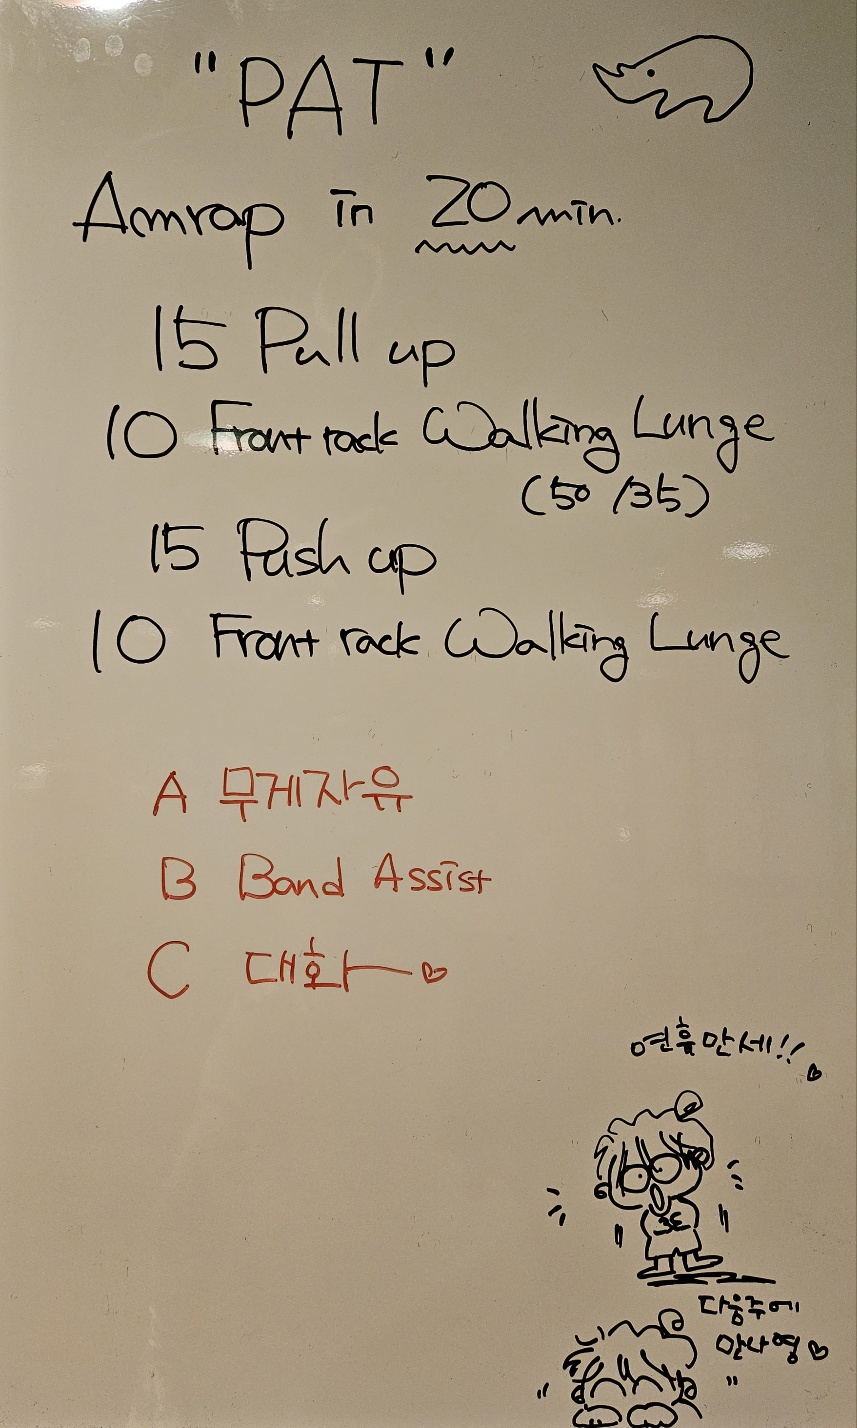 "PAT"
Amrap in 20min.
15 Pull up
10 Front rack Walking Lunge
(50/35)
15 Push up
10 Front rack Walking Lunge
A 무게자유
B Band Assist
C 대화ー♡
연휴만세!!♡
다음주에
만나영♡